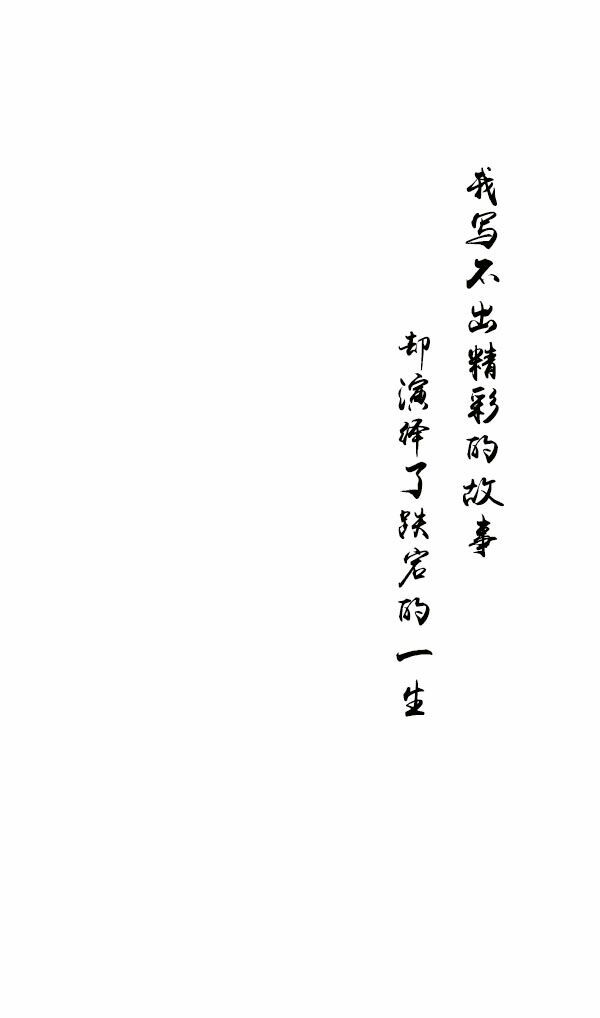 我写不出精彩的故事
却演绎了跌宕的一生